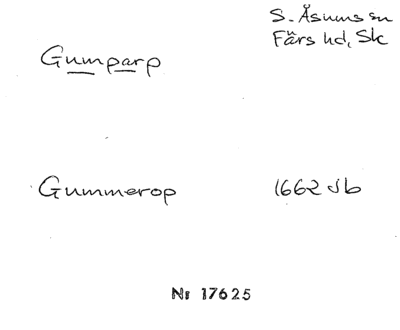 S. Åsums sn
Färs hd, Sk
Gumparp
Gummerop
1662 Jb
Nr 17625